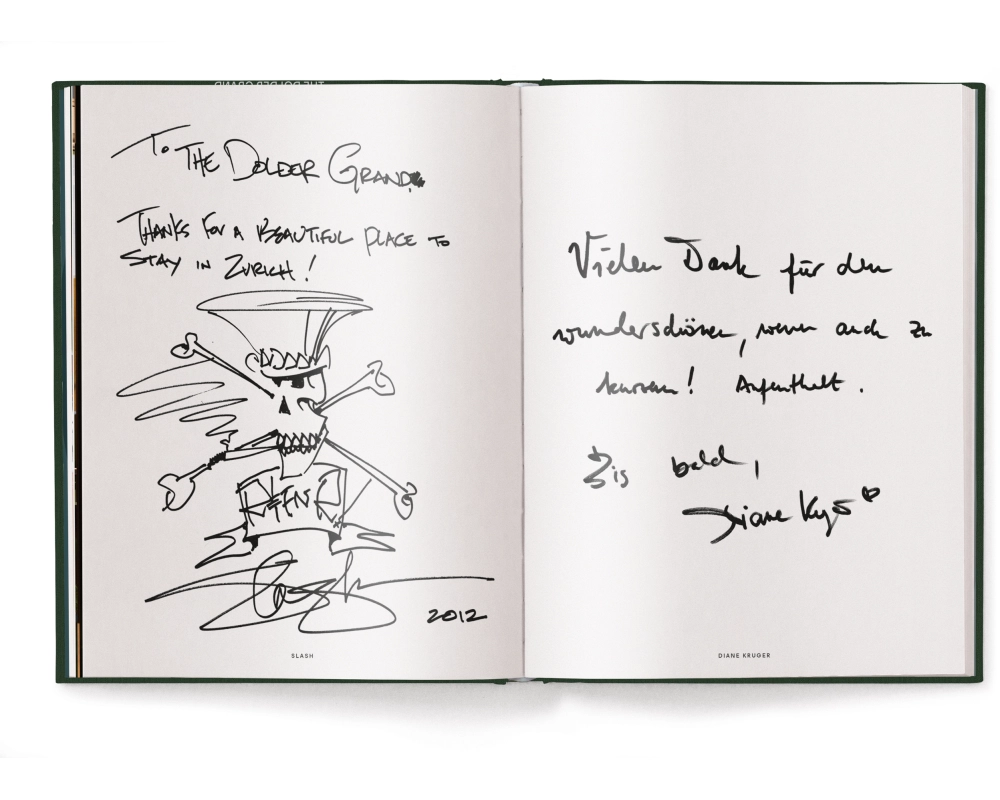 To THE DOLDER GRAND.
THANKS FOR A BEAUTIFUL PLACE TO
STAY IN ZURICH!
R&FN R
Slash
2012
SLASH
Vielen Dank für den
wunderschönen, wenn auch zu
kurzen! Aufenthalt.
Bis bald,
Diane
DIANE KRUGER